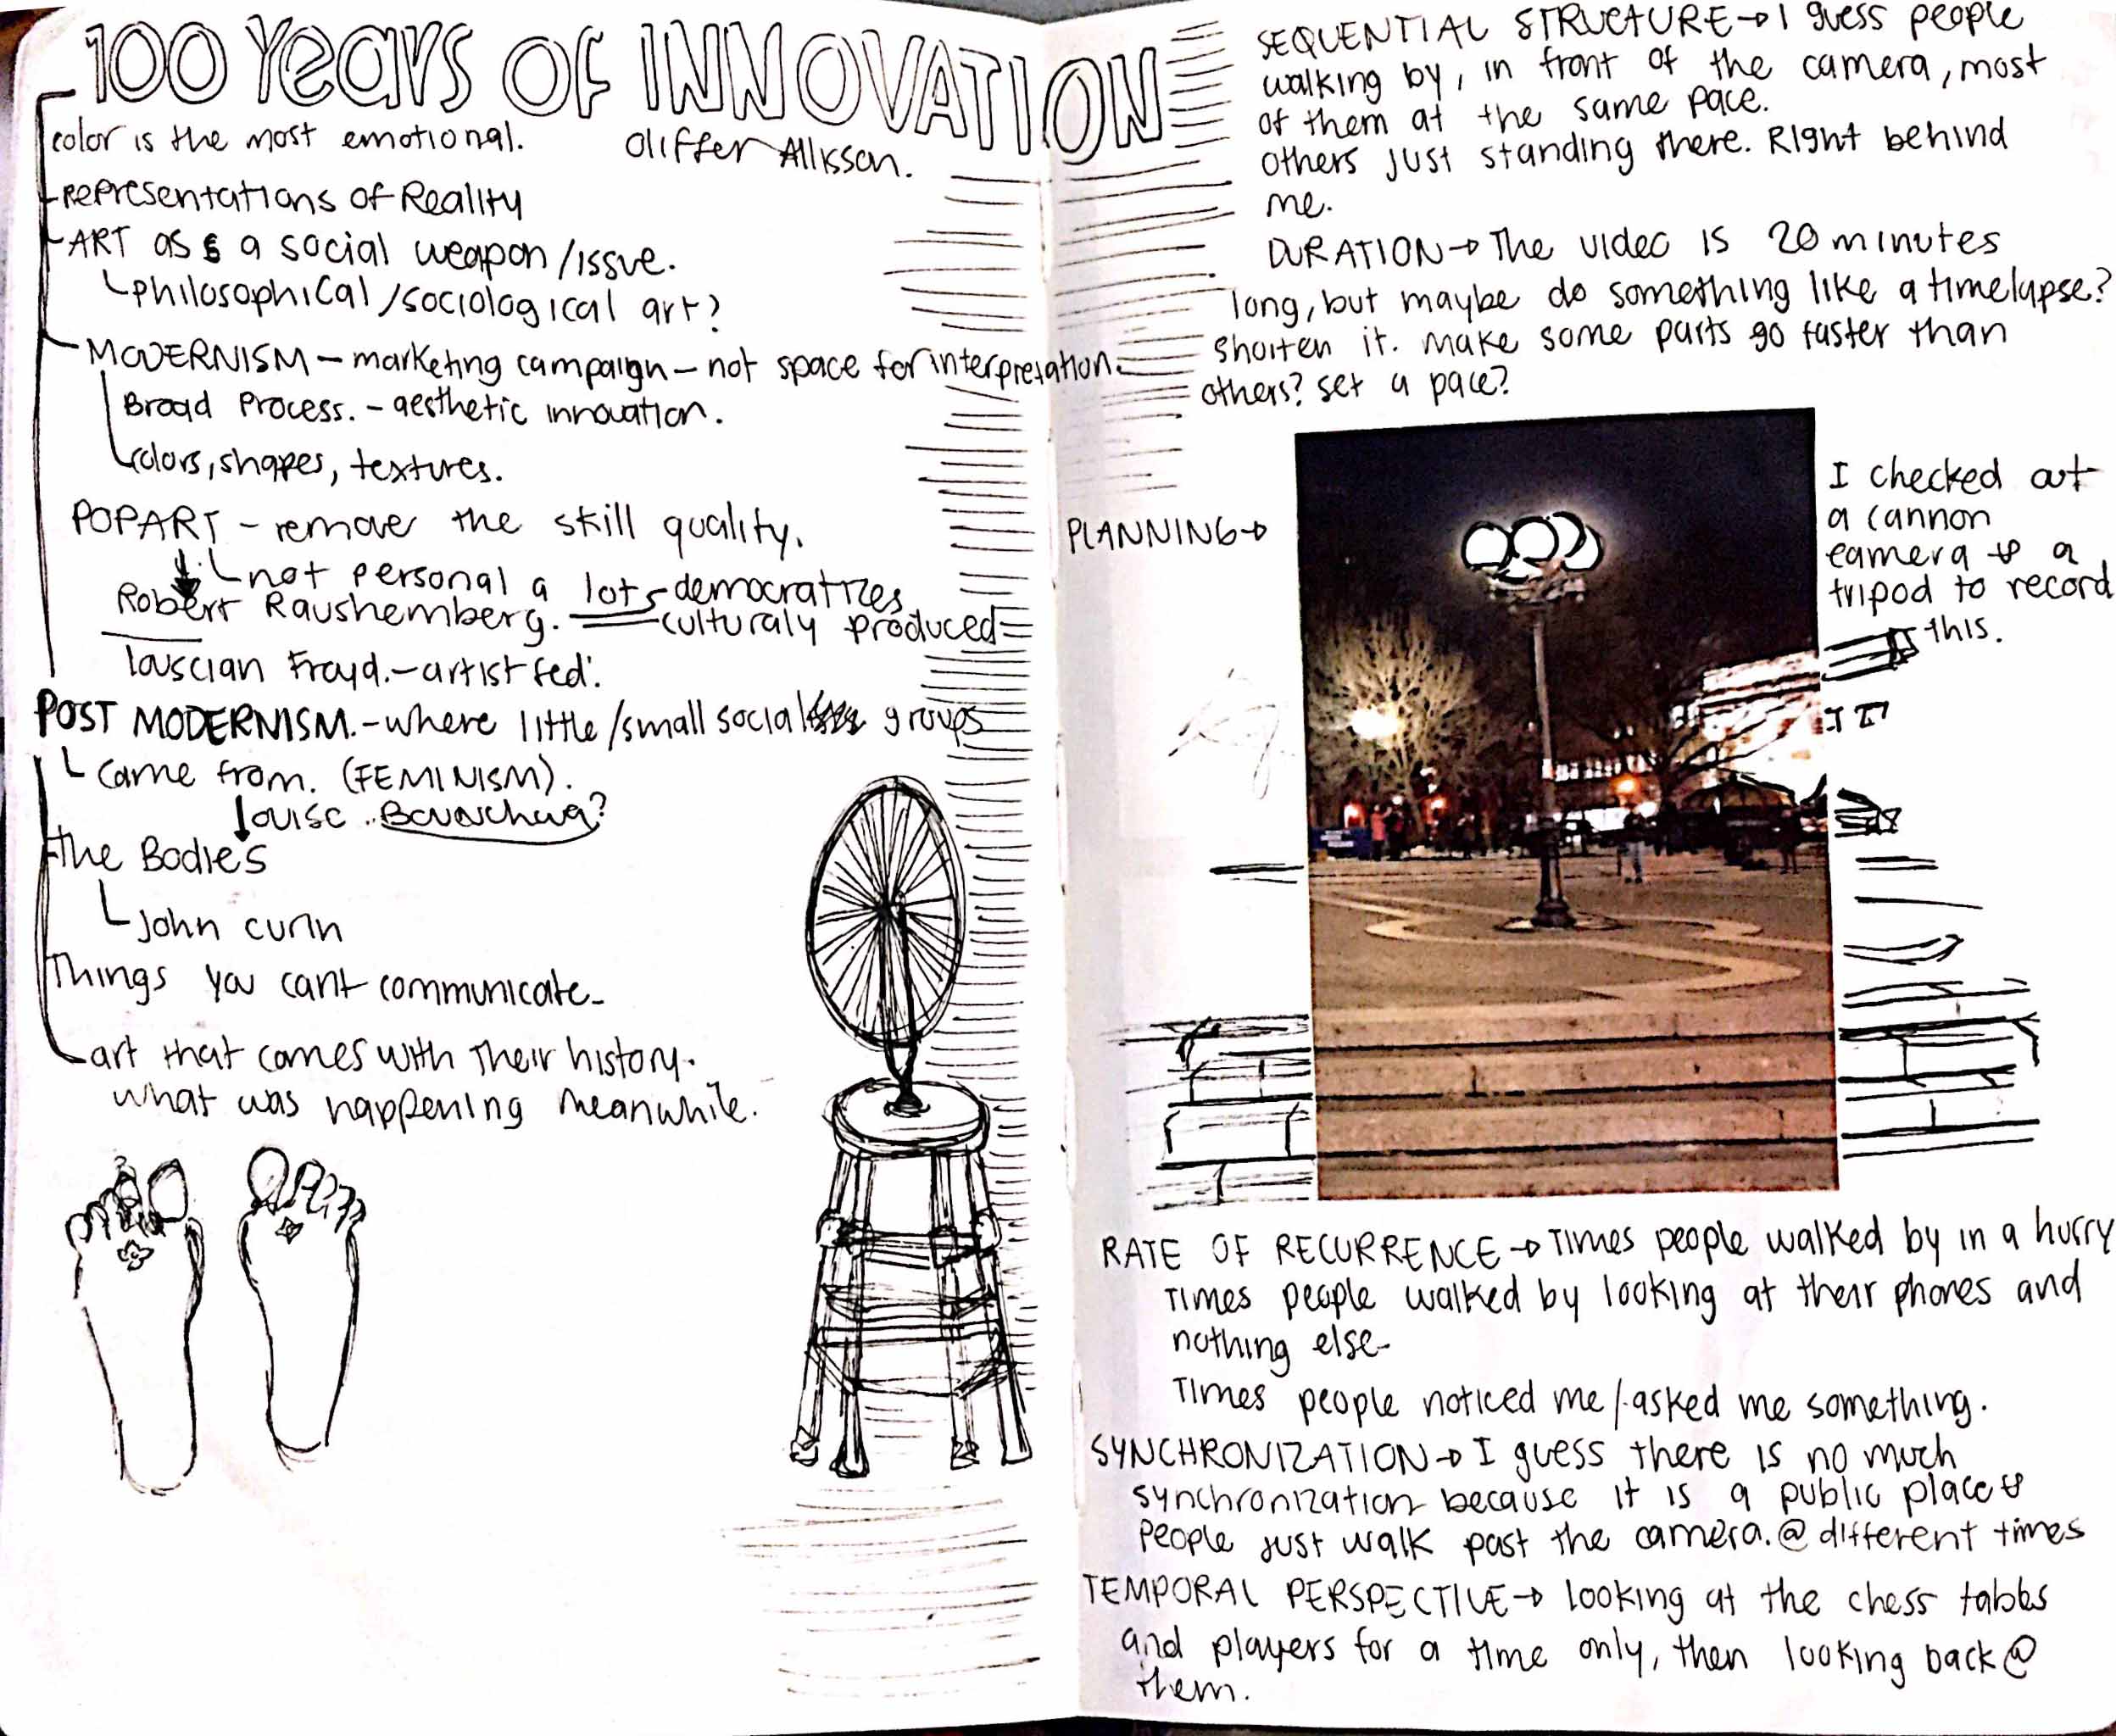 100 Years OF INNOVATION
color is the most emotional.
differ Allisson.
-Representations of Reality
-ART as a social weapon/issue.
philosophical/sociological art?
MODERNISM - marketing campaign - not space for interpretation.
Broad Process. - aesthetic innovation.
colors, shapes, textures.
POPART - remove the skill quality.
not personal a lot democratizes
Robert Raushemberg. culturaly produced
Froyd. - artist fed.
POST MODERNISM. - where little/small social groups
came from. (FEMINISM).
louise
the Bodies
John curin
Things you cant communicate-
art that comes with their history.
what was happening meanwhile.
SEQUENTIAL STRUCTURE → I guess people
walking by, in front of the camera, most
of them at the same pace.
others just standing there. Right behind
me.
DURATION → The video is 20 minutes
long, but maybe do something like a timelapse?
shorten it. make some parts go faster than
others? set a pace?
PLANNING →
I checked out
a cannon
camera & a
tripod to record
this.
RATE OF RECURRENCE → Times people walked by in a hurry
Times people walked by looking at their phones and
nothing else-
Times people noticed me/asked me something.
SYNCHRONIZATION → I guess there is no much
synchronization because it is a public place &
People just walk past the camera. @ different times
TEMPORAL PERSPECTIVE → looking at the chess tables
and players for a time only, then looking back @
them.